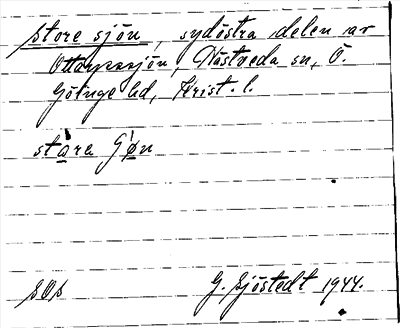 store sjön, sydöstra delen av
Ottarpasjön, Västveda sn, Ö.
Göinge hd, Krist. l.
stàra Gøn
SOS G. Sjöstedt 1944.